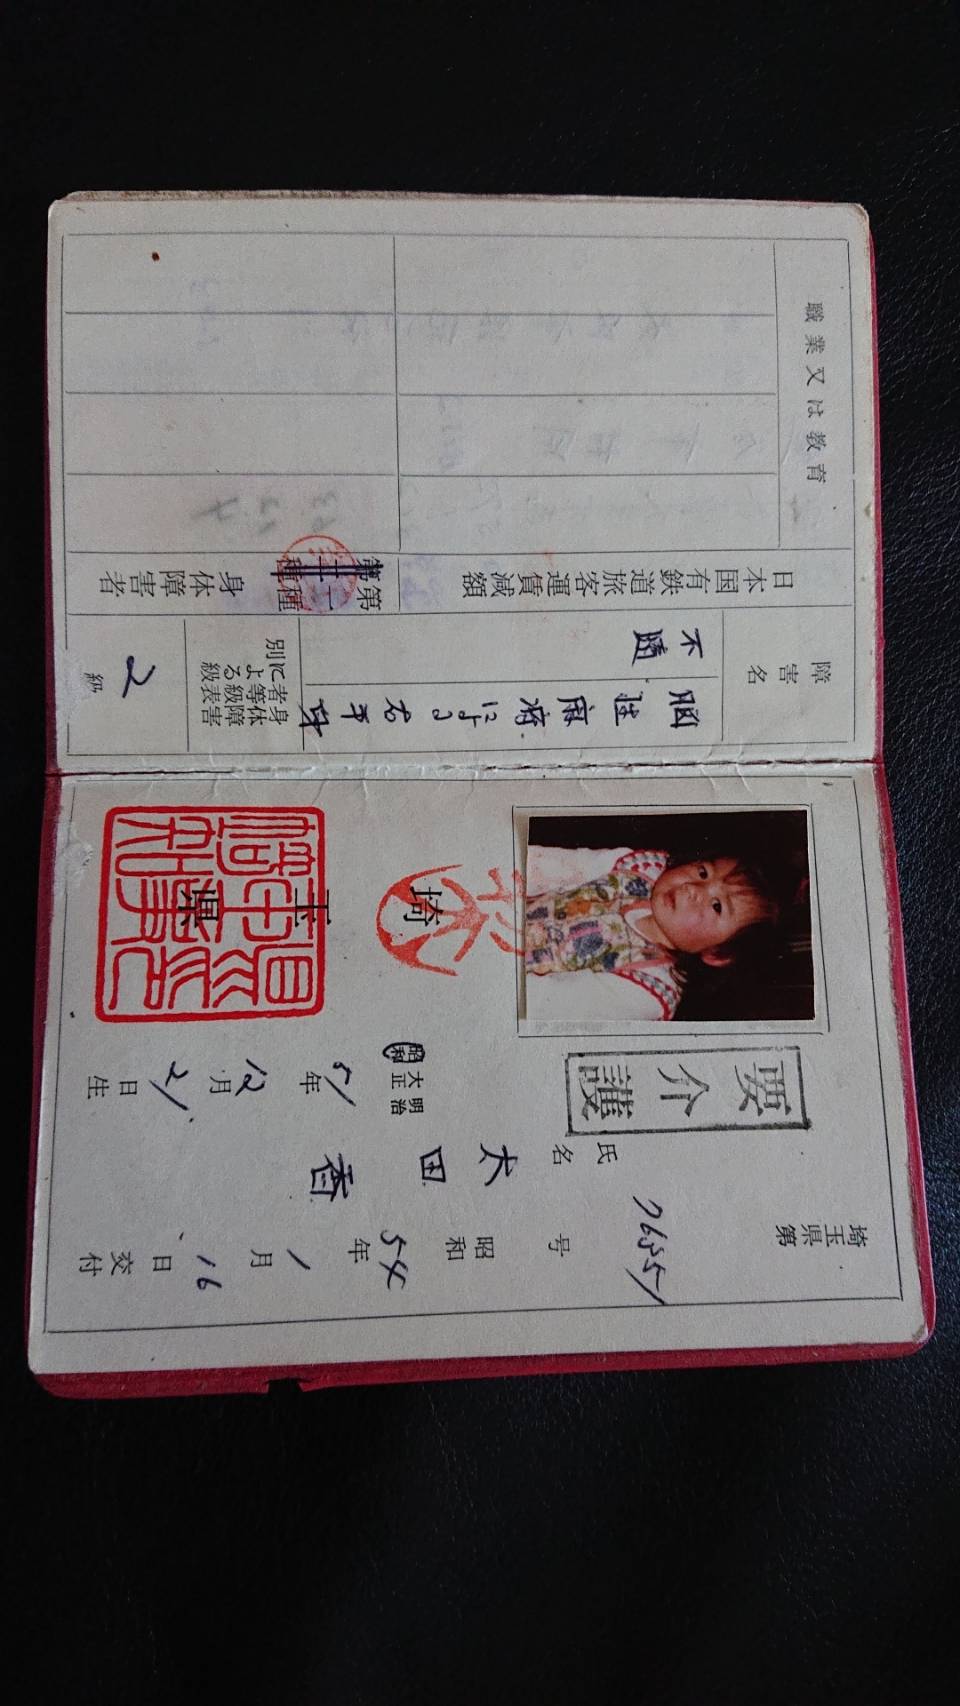 埼玉県第
76551
号
昭和54年1月16日交付
氏名
太田香
明治
大正
昭和
51年12月21日生
要介護
埼玉県
障害名
脳性麻痺による右半身
不随
身体障害
者等級表
による級
別
2級
日本国有鉄道旅客運賃減額
第一種
第二種
身体障害者
職業又は教育